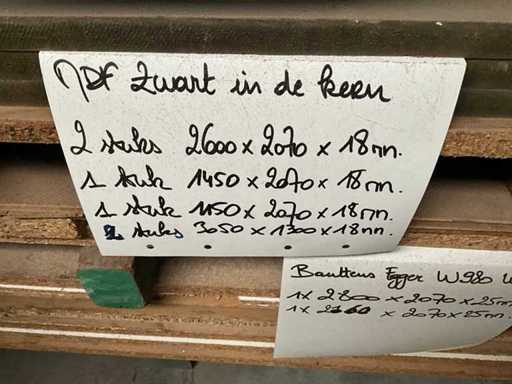 MDF zwart in de kern
2 stuks 2600 x 2070 x 18mm.
1 stuk 1450 x 2070 x 18mm.
1 stuk 1150 x 2070 x 18mm.
2 stuks 3050 x 1300 x 18mm.
Egger W980
1x 2800 x 2070 x 25m
1x x 2070 x 25m